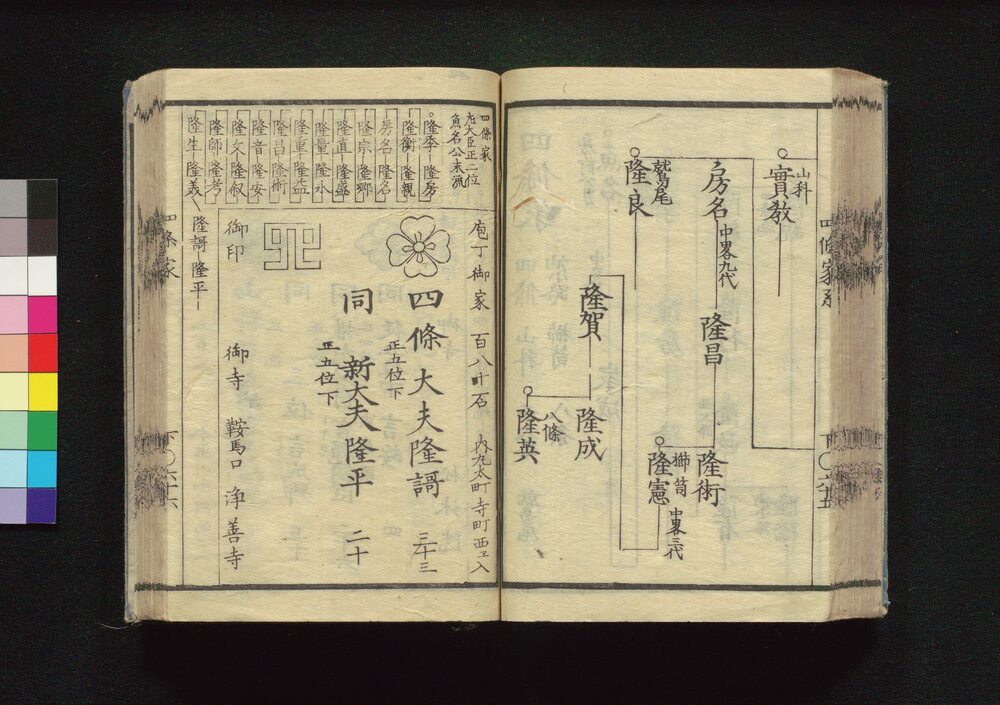 四條家系
山科
實教
房名
中畧九代
隆昌
隆術
櫛笥
隆憲
中畧三代
鷲尾
隆良
隆賀
隆成
八條
隆英
四條家
左大臣正二位
魚名公末流
隆季 隆房
隆衡 隆親
房名 隆名
隆宗 隆郷
隆直 隆盛
隆量 隆永
隆重 隆益
隆昌 隆術
隆音 隆安
隆文 隆叙
隆師 隆考
隆生 隆美
隆謌 隆平
庖丁御家 百八十石 内丸太町寺町西ヱ入
四條大夫隆謌 三十三
正五位下
同 新大夫隆平 二十
正五位下
御印
御寺 鞍馬口 浄善寺
四條家